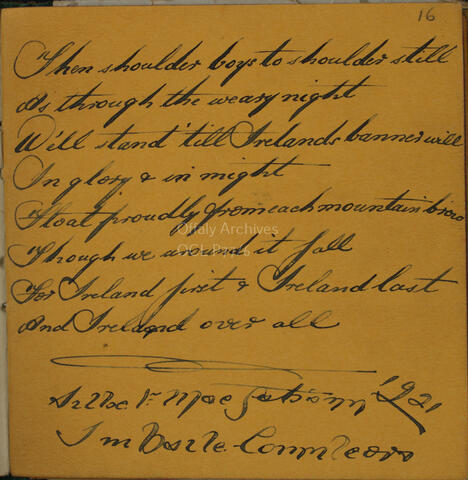 16
Then shoulder boys to shoulder still
As through the weary night
We'll stand 'till Irelands banner will
In glory & in might
Float proudly from each mountain brow
Offaly Archives
Though we around it fall
For Ireland first & Ireland last
And Ireland over all
1921